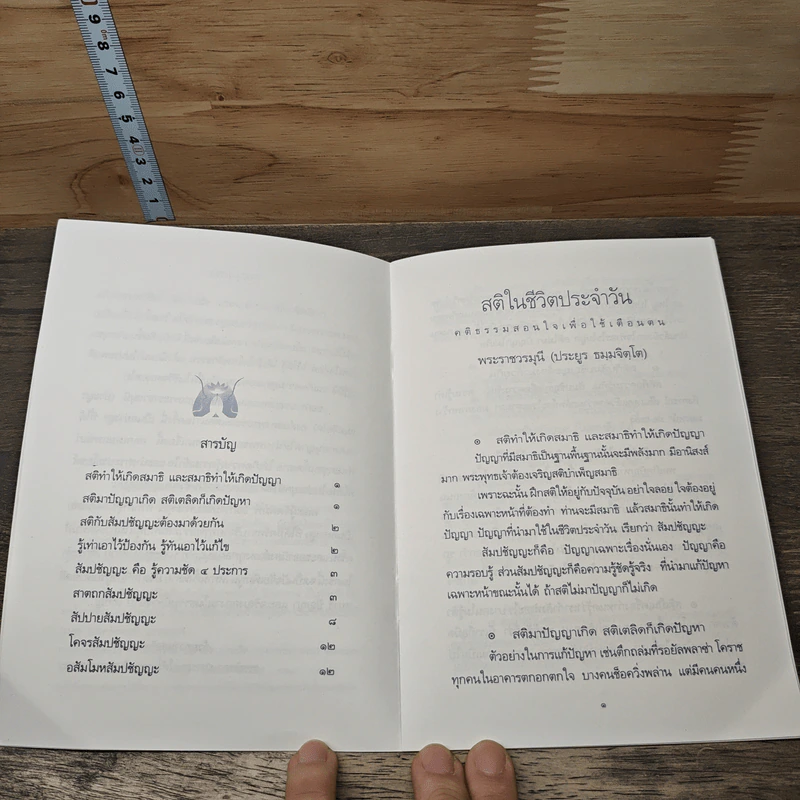 9
8
7
6
5
4
3
2
1
สารบัญ
สติทำให้เกิดสมาธิ และสมาธิทำให้เกิดปัญญา ๑
สติมาปัญญาเกิด สติเตลิดก็เกิดปัญหา ๑
สติกับสัมปชัญญะต้องมาด้วยกัน ๒
รู้เท่าเอาไว้ป้องกัน รู้ทันเอาไว้แก้ไข ๒
สัมปชัญญะ คือ รู้ความชัด ๔ ประการ ๓
สาตถกสัมปชัญญะ ๓
สัปปายสัมปชัญญะ ๘
โคจรสัมปชัญญะ ๑๒
อสัมโมหสัมปชัญญะ ๑๒
สติในชีวิตประจำวัน
คติธรรมสอนใจเพื่อใช้เตือนตน
พระราชวรมุนี (ประยูร ธมฺมจิตฺโต)
๑ สติทำให้เกิดสมาธิ และสมาธิทำให้เกิดปัญญา
ปัญญาที่มีสมาธิเป็นฐานพื้นฐานนั้นจะมีพลังมาก มีอานิสงส์
มาก พระพุทธเจ้าต้องเจริญสติบำเพ็ญสมาธิ
เพราะฉะนั้น ฝึกสติให้อยู่กับปัจจุบัน อย่าใจลอย ใจต้องอยู่
กับเรื่องเฉพาะหน้าที่ต้องทำ ท่านจะมีสมาธิ แล้วสมาธินั้นทำให้เกิด
ปัญญา ปัญญาที่นำมาใช้ในชีวิตประจำวัน เรียกว่า สัมปชัญญะ
สัมปชัญญะก็คือ ปัญญาเฉพาะเรื่องนั่นเอง ปัญญาคือ
ความรอบรู้ ส่วนสัมปชัญญะก็คือความรู้ชัดรู้จริง ที่นำมาแก้ปัญหา
เฉพาะหน้าขณะนั้นได้ ถ้าสติไม่มาปัญญาก็ไม่เกิด
๑ สติมาปัญญาเกิด สติเตลิดก็เกิดปัญหา
ตัวอย่างในการแก้ปัญหา เช่นตึกถล่มที่รอยัลพลาซ่า โคราช
ทุกคนในอาคารตกอกตกใจ บางคนช็อควิ่งพล่าน แต่มีคนคนหนึ่ง
๑